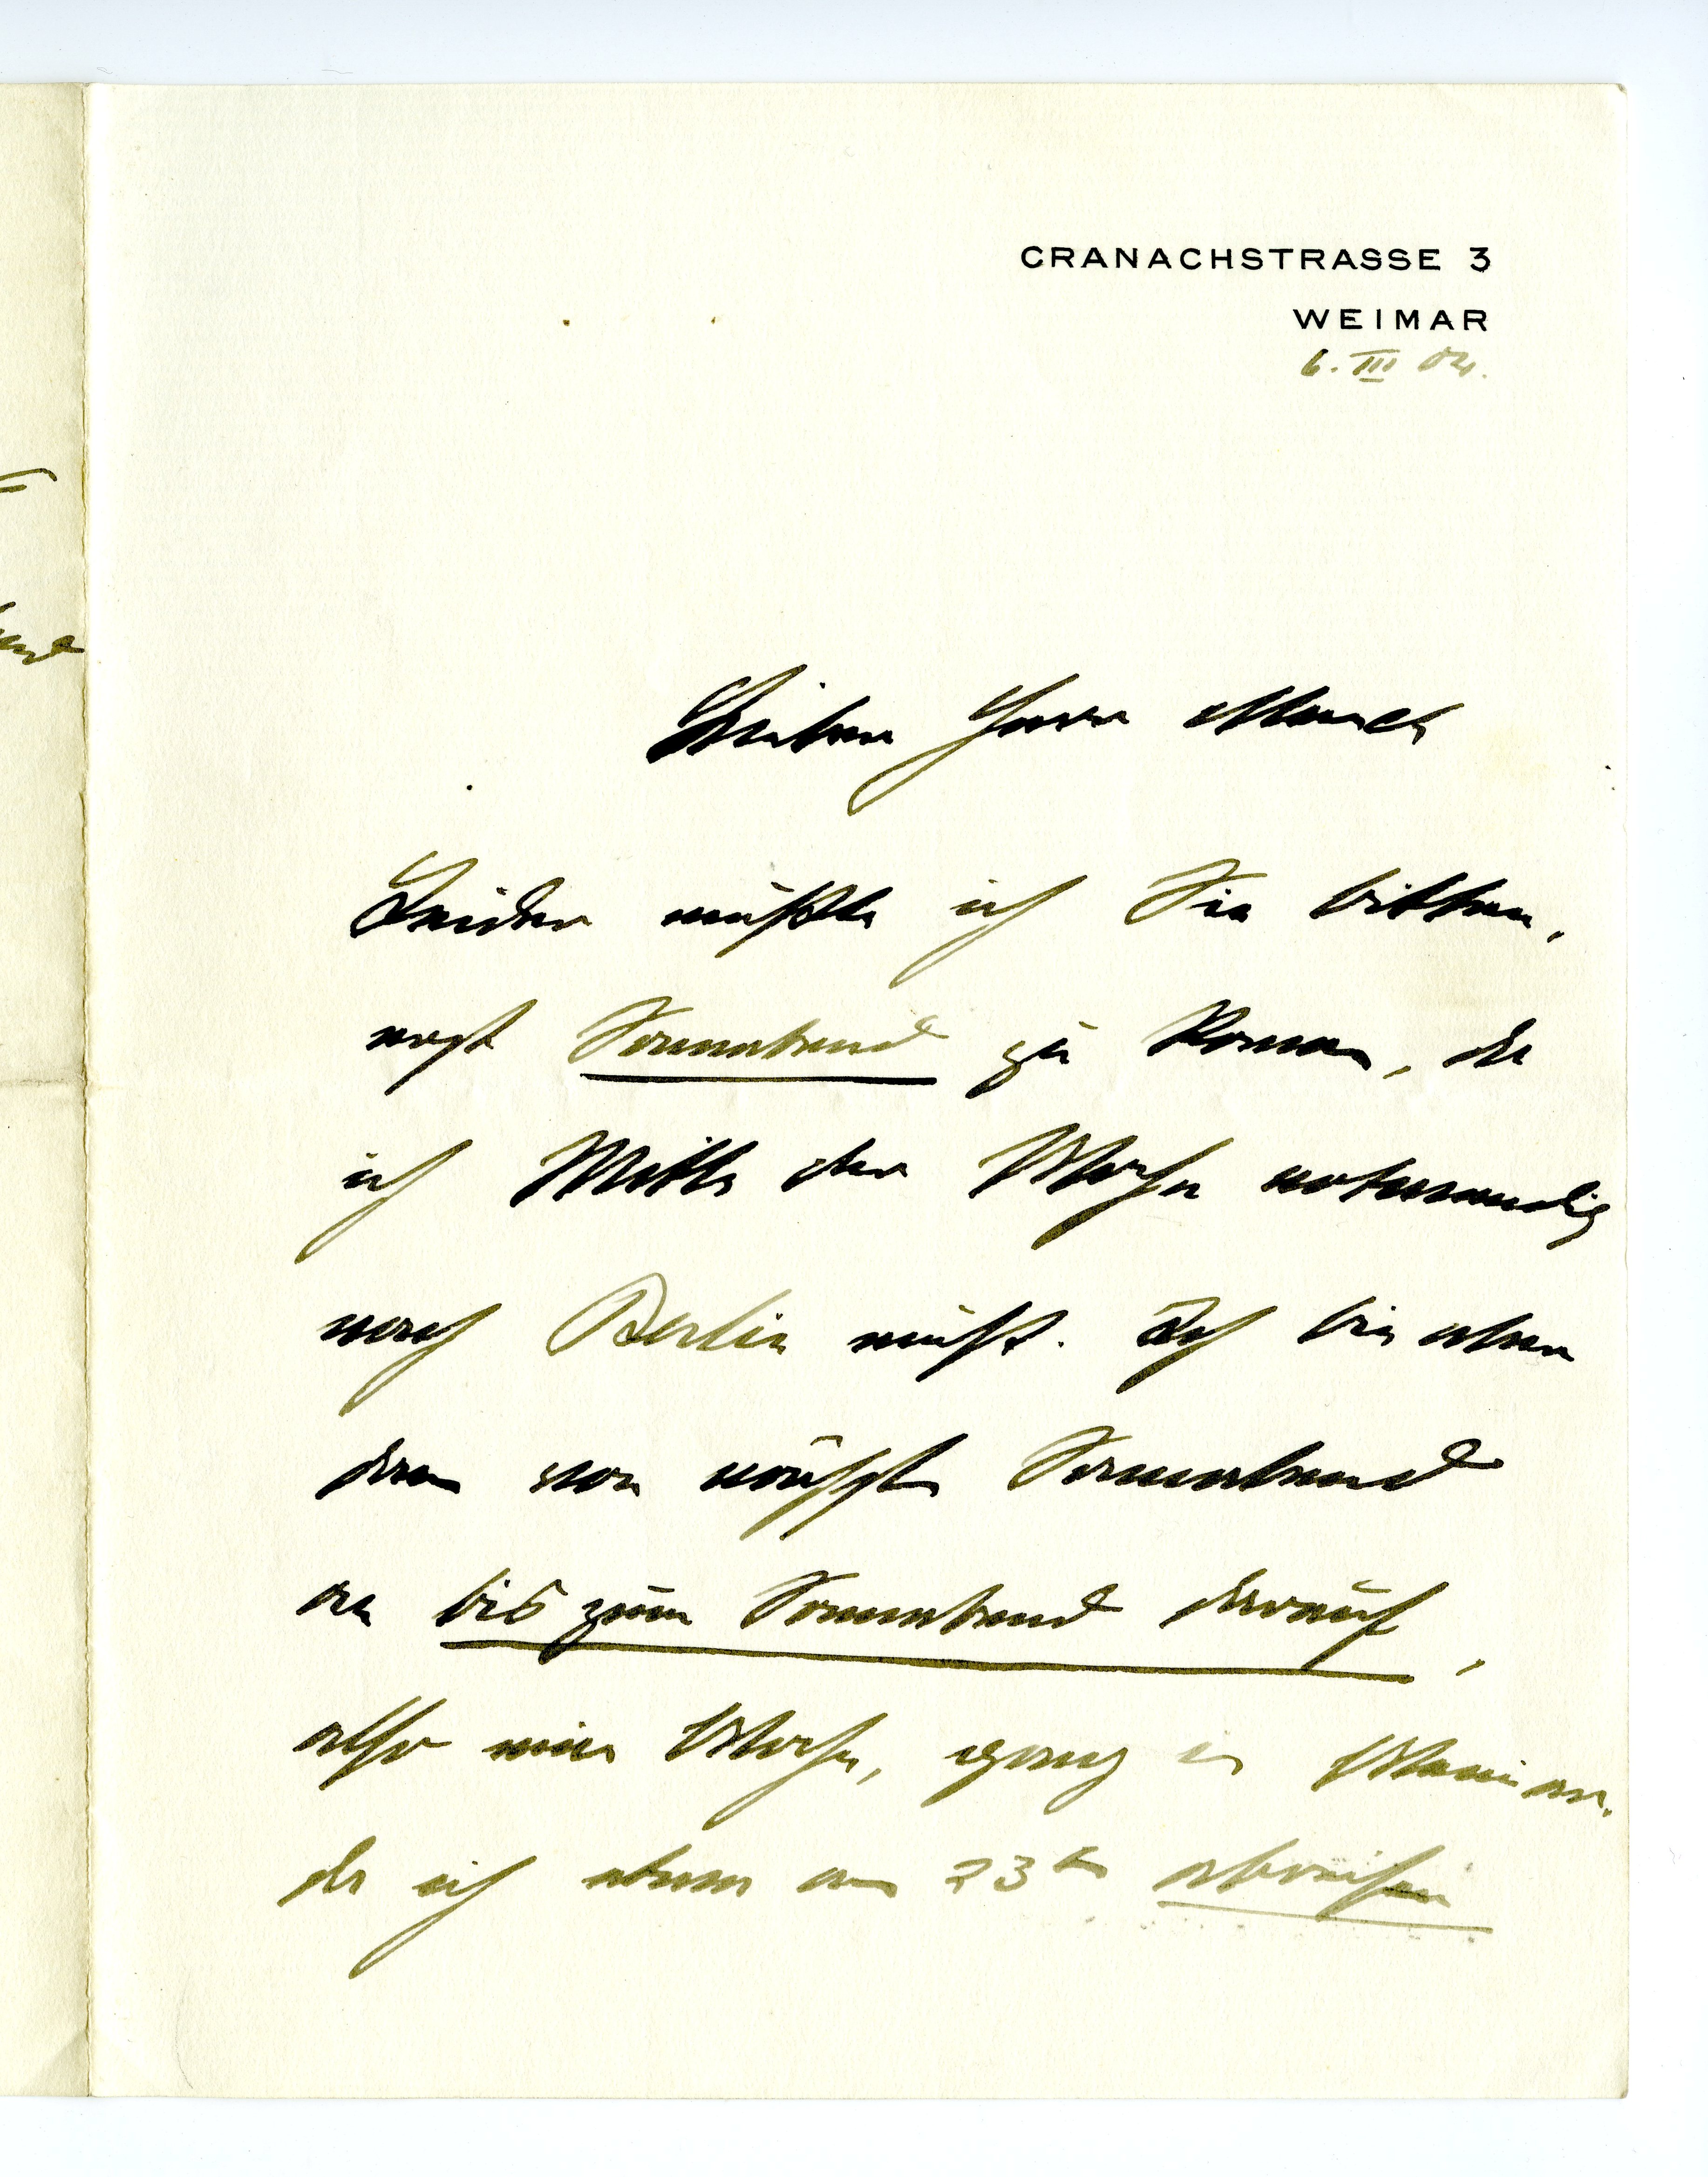 CRANACHSTRASSE 3
WEIMAR
6. III 04.
Lieber Herr Munch
Leider müßte ich Sie bitten,
erst Sonnabend zu kommen, da
ich Mitte der Woche notwendig
nach Berlin muß. Ich bin aber
dann von nächst Sonnabend
an bis zum Sonnabend darauf,
also eine Woche, ganz in Weimar.
da ich abends am 23ten abreisen